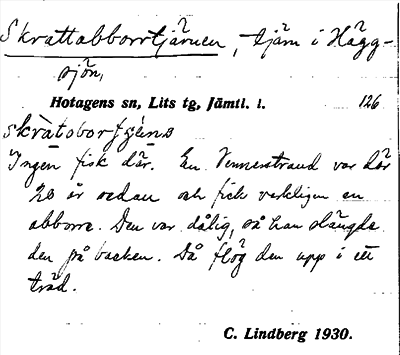 Skrattabborrtjärnen, tjärn i Hägg-
sjön,
Hotagens sn, Lits tg, Jämtl. l.
126
skràtoborʃʃéns
Ingen fisk där. En Vennerstrand var där
20 år sedan och fick verkligen en
abborre. Den var dålig, så han slängde
den på backen. Då flög den upp i ett
träd.
C. Lindberg 1930.